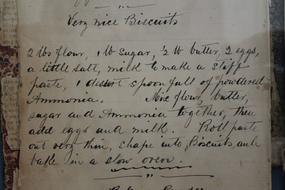 Very nice Biscuits
2 lbs flour, 1 lb sugar, ½ lb butter, 2 eggs,
a little salt, milk to make a stiff
paste, 1 desert spoon full of powdered
Ammonia. Mix flour, butter,
sugar and Ammonia together, then
add eggs and milk. Roll paste
out very thin, shape into Biscuits and
bake in a slow oven.